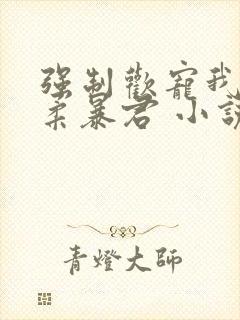 強制歡寵我
柔暴君 小說
青燈大師